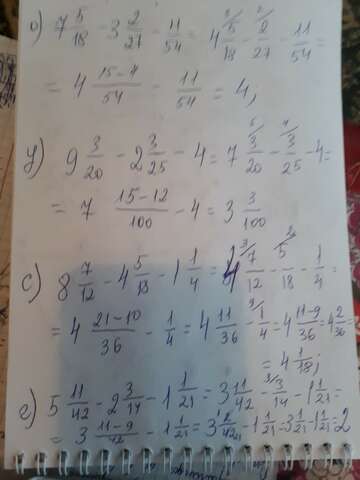 о) 7 5/18 - 3 2/27 - 11/54 = 4 5/18 - 2/27 - 11/54 =
= 4 (15-4)/54 - 11/54 = 4;
у) 9 3/20 - 2 3/25 - 4 = 7 3/20 - 3/25 - 4 =
= 7 (15-12)/100 - 4 = 3 3/100
с) 8 7/12 - 4 5/18 - 1 1/4 = 4 7/12 - 5/18 - 1/4 =
= 4 (21-10)/36 - 1/4 = 4 11/36 - 1/4 = 4 (11-9)/36 = 4 2/36
= 4 1/18;
г) 5 11/42 - 2 3/14 - 1 1/21 = 3 11/42 - 3/14 - 1 1/21 =
= 3 (11-9)/42 - 1 1/21 = 3 2/42 - 1 1/21 = 3 1/21 - 1 1/21 = 2